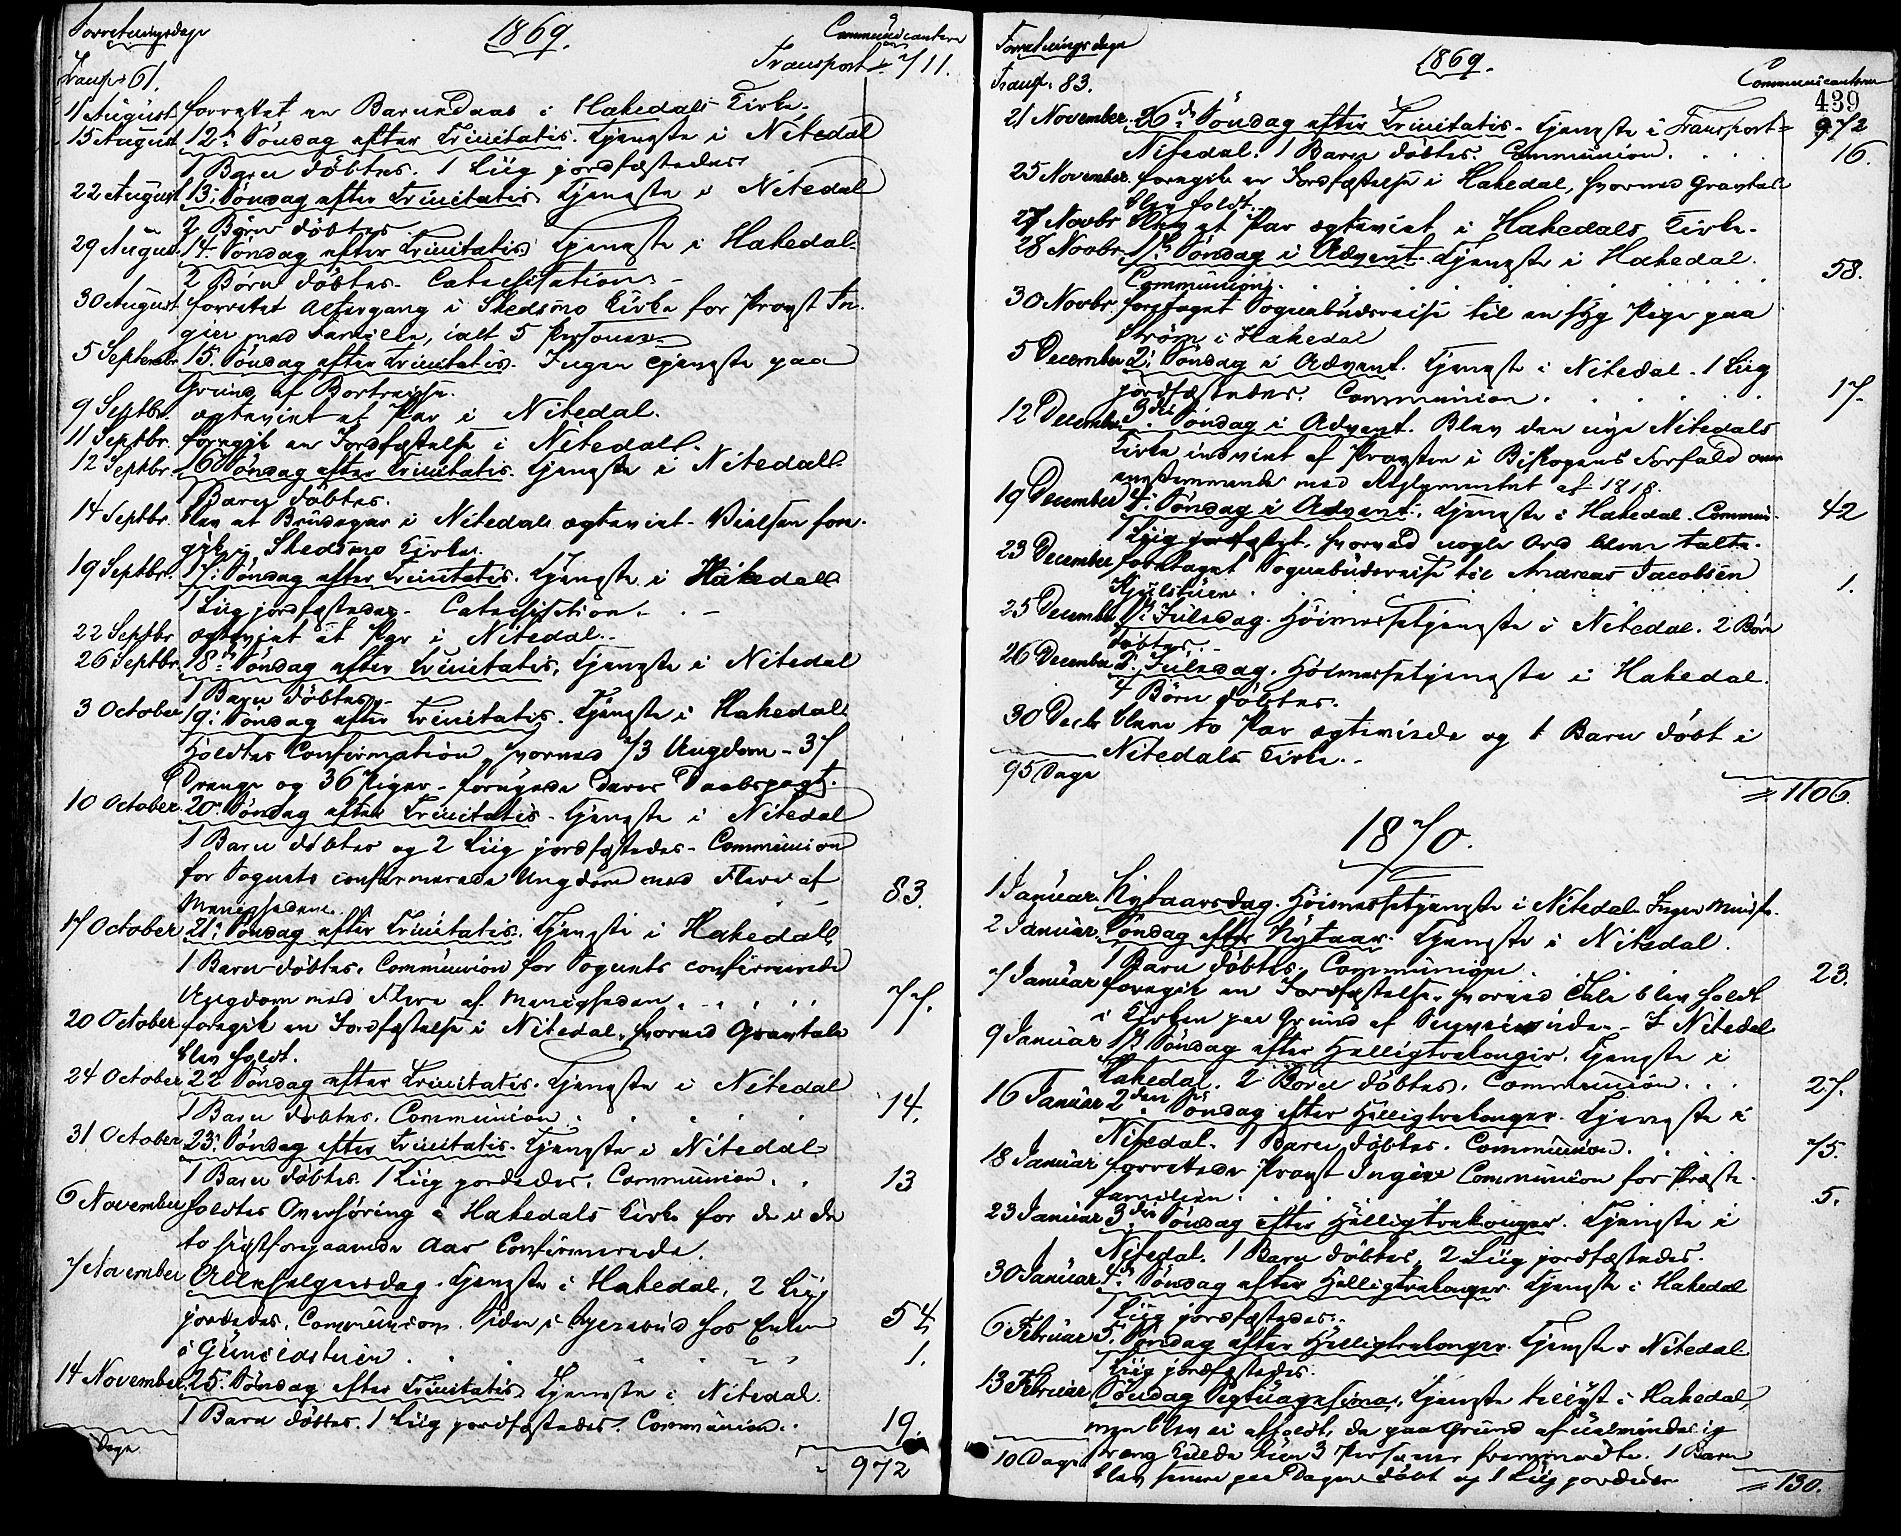 Forretningsdage 1869. Communicantere
Transp. 61. Transport 711.
11 August forrettet en Barnedaab i Hakedals Kirke.
15 August 12. Søndag efter Trinitatis. Tjeneste i Nitedal
1 Barn døbtes. 1 Liig jordfæstedes.
22 August 13. Søndag efter Trinitatis. Tjeneste i Nitedal
2 Børn døbtes.
29 August 14. Søndag efter Trinitatis. Tjeneste i Hakedal.
2 Børn døbtes. Catechisation.
30 August forrettet Altergang i Skedsmo Kirke for Provst In-
gier med Familie, ialt 5 Personer.
5 Septembr. 15. Søndag efter Trinitatis. Ingen Tjeneste paa
Grund af Bortreise.
9 Septbr. ægteviet et Par i Nitedal.
11 Septbr. foregik en Jordfæstelse i Nitedal.
12 Septbr. 16 Søndag efter Trinitatis. Tjeneste i Nitedal.
1 Barn døbtes.
14 Septbr. blev et Brudepar i Nitedal ægteviet. Vielsen fore-
gik i Skedsmo Kirke.
19 Septbr. 17. Søndag efter Trinitatis. Tjeneste i Hakedal
1 Liig jordfæstedes. Catechisation.
22 Septbr. ægteviet et Par i Nitedal.
26 Septbr. 18. Søndag efter Trinitatis. Tjeneste i Nitedal
1 Barn døbtes.
3 October 19. Søndag efter Trinitatis. Tjeneste i Hakedal
Holdtes Confirmation, hvorved 73 Ungdom - 37
Drenge og 36 Piger - fornyede deres Daabspagt.
10 October. 20. Søndag efter Trinitatis. Tjeneste i Nitedal
1 Barn døbtes og 2 Liig jordfæstedes. Communion
for Sognets confirmerede Ungdom med Flere af 83.
Menigheden.
17 October 21. Søndag efter Trinitatis. Tjeneste i Hakedal
1 Barn døbtes. Communion for Sognets confirmerede
Ungdom med Flere af Menigheden. 77.
20 October foregik en Jordfæstelse i Nitedal, hvorved Gravtale
blev holdt.
24 October 22 Søndag efter Trinitatis. Tjeneste i Nitedal
1 Barn døbtes. Communion. 14.
31 October 23. Søndag efter Trinitatis. Tjeneste i Nitedal
1 Barn døbtes. 1 Liig jordedes. Communion. 13
6 November holdtes Overhøring i Hakedals Kirke for de i de
to sidstforegaaende Aar Confirmerede.
7 November Allehelgensdag. Tjeneste i Hakedal. 2 Liig
jordedes. Communion. Siden i hos Enken 54
i 1.
14 November. 25. Søndag efter Trinitatis. Tjeneste i Nitedal.
1 Barn døbtes. 1 Liig jordfæstedes. Communion. 19.
Dage 972
Forretningsdage 1869. Communicantere
Transp. 83. 439
21 November. 26de Søndag efter Trinitatis. Tjeneste i Transport 972
Nitedal. 1 Barn døbtes. Communion. 16.
25 November. foregik en Jordfæstelse i Hakedal, hvorved Gravtale
blev holdt.
27 Novbr blev et Par ægteviet i Hakedals Kirke.
28 Novbr. 1ste Søndag i Advent. Tjeneste i Hakedal.
Communion. 58.
30 Novbr. foretaget Sognebudsreise til en syg Pige paa
Strøm i Hakedal
5 December 2. Søndag i Advent. Tjeneste i Nitedal. 1 Liig
jordfæstedes. Communion. 17.
12 December 3die Søndag i Advent. Blev den nye Nitedals
Kirke indviet af Provsten i Biskopens Forfald over-
eensstemmende med Reglementet af 1818.
19 December 4. Søndag i Advent. Tjeneste i Hakedal. Commun- 42
1 Liig jordfæstet, hvorved nogle Ord bleve talte.
23 December foretaget Sognebudsreise til Andreas Jacobsen
Kjulstuen. 1.
25 December 1ste Juledag. Høimessetjeneste i Nitedal. 2 Børn
døbtes.
26 December 2. Juledag. Høimessetjeneste i Hakedal.
4 Børn døbtes.
30 Decbr. bleve to Par ægteviede og 1 Barn døbt i
Nitedals Kirke.
95 Dage
1106.
1870.
1 Januar. Nytaarsdag. Høimessetjeneste i Nitedal. Ingen
2 Januar. Søndag efter Nytaar. Tjeneste i Nitedal.
1 Barn døbtes. Communion. 23.
7 Januar foregik en Jordfæstelse, hvorved Tale blev holdt
i Kirken paa Grund af - I Nitedal
9 Januar 1ste Søndag efter Helligtrekonger. Tjeneste i
Hakedal. 2 Børn døbtes. Communion. 27.
16 Januar 2den Søndag efter Helligtrekonger. Tjeneste i
Nitedal. 1 Barn døbtes. Communion. 75.
18 Januar forrettede Provst Ingier Communion for Præste-
familien. 5.
23 Januar 3die Søndag efter Helligtrekonger. Tjeneste i
Nitedal. 1 Barn døbtes, 2 Liig jordfæstedes.
30 Januar 4de Søndag efter Helligtrekonger. Tjeneste i Hakedal
1 Liig jordfæstedes.
6 Februar 5. Søndag efter Helligtrekonger. Tjeneste i Nitedal
1 Liig jordfæstedes.
13 Februar Søndag Septuagesima. Tjeneste tillyst i Hakedal,
men blev ei afholdt, da paa Grund af ualmindelig
10 Dage streng Kulde kun 3 Personer fremmødte. 1 Barn
blev senere paa Dagen døbt og 1 Liig jordedes
130.